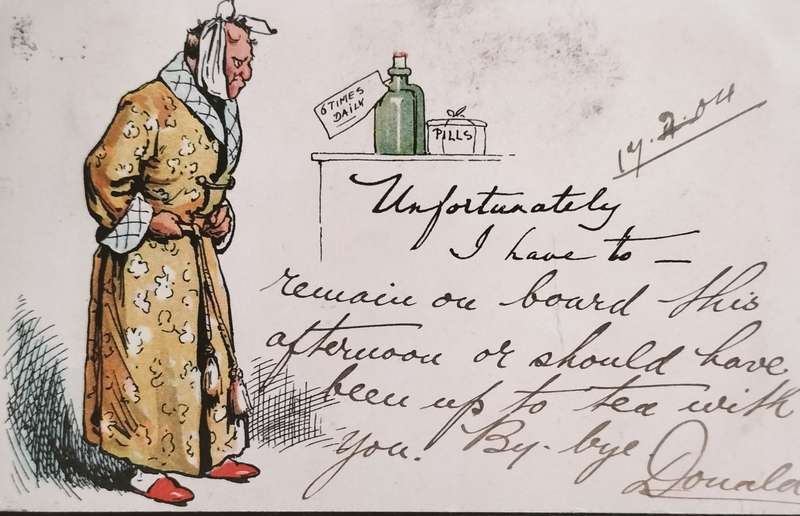 6 TIMES
DAILY
PILLS
17.2.04
Unfortunately
I have to —
remain on board this
afternoon or should have
been up to tea with
you. By-bye
Donald